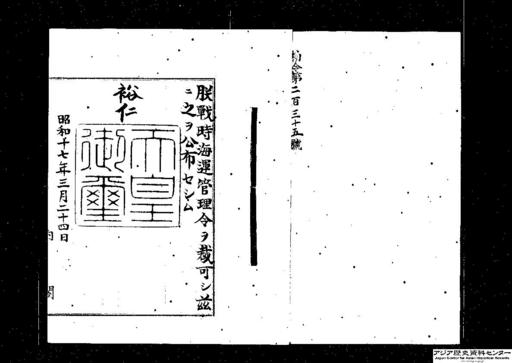 勅令第二百三十五號
朕戰時海運管理令ヲ裁可シ茲
ニ之ヲ公布セシム
裕仁
天皇
御璽
昭和十七年三月二十四日
内閣
アジア歴史資料センター
Japan Center for Asian Historical Records